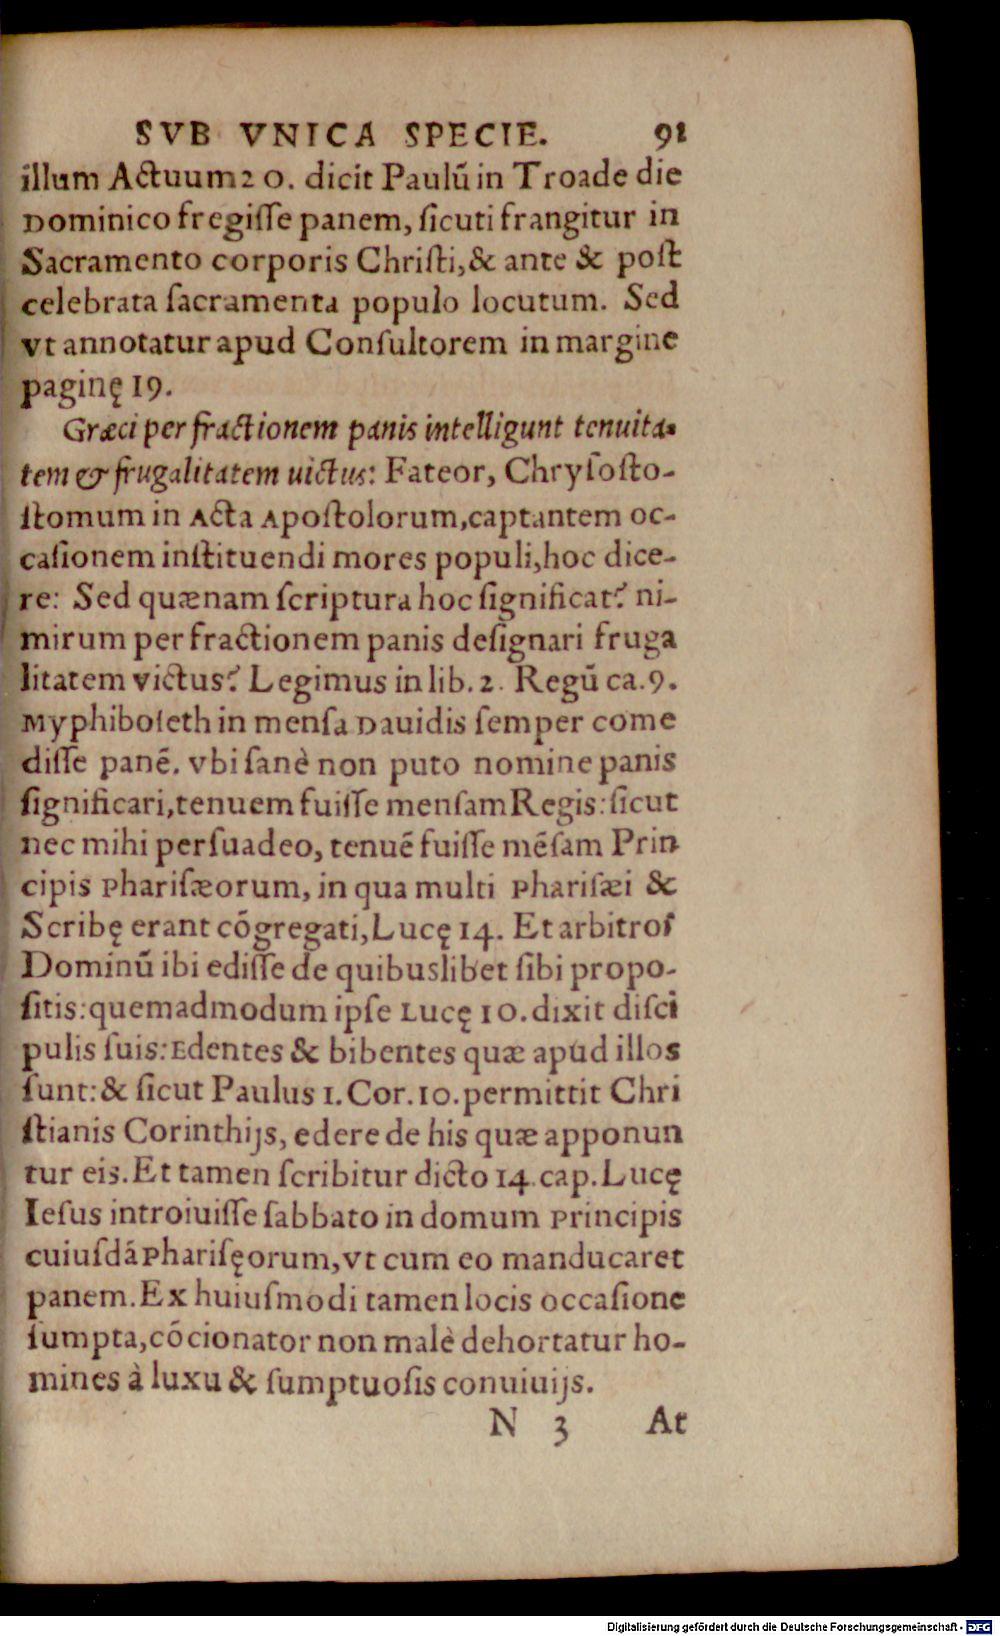 SVB VNICA SPECIE. 91
illum Actuum 20. dicit Paulũ in Troade die
Dominico fregiſſe panem, ſicuti frangitur in
Sacramento corporis Chriſti, & ante & poſt
celebrata ſacramenta populo locutum. Sed
vt annotatur apud Conſultorem in margine
paginę 19.
Græci per fractionem panis intelligunt tenuita-
tem & frugalitatem uictus: Fateor, Chryſoſto-
ſtomum in Acta Apoſtolorum, captantem oc-
caſionem inſtituendi mores populi, hoc dice-
re: Sed quænam ſcriptura hoc ſignificat? ni-
mirum per fractionem panis deſignari fruga
litatem victus? Legimus in lib. 2. Regũ ca. 9.
Myphiboſeth in menſa Dauidis ſemper come
diſſe panẽ. vbi ſanè non puto nomine panis
ſignificari, tenuem fuiſſe menſam Regis: ſicut
nec mihi perſuadeo, tenuẽ fuiſſe mẽſam Prin
cipis Phariſæorum, in qua multi Phariſæi &
Scribę erant cõgregati, Lucę 14. Et arbitror
Dominũ ibi ediſſe de quibuslibet ſibi propo-
ſitis: quemadmodum ipſe Lucę 10. dixit diſci
pulis ſuis: Edentes & bibentes quæ apud illos
ſunt: & ſicut Paulus 1. Cor. 10. permittit Chri
ſtianis Corinthijs, edere de his quæ apponun
tur eis. Et tamen ſcribitur dicto 14. cap. Lucę
Ieſus introiuiſſe ſabbato in domum Principis
cuiuſdã Phariſęorum, vt cum eo manducaret
panem. Ex huiuſmodi tamen locis occaſione
ſumpta, cõcionator non malè dehortatur ho-
mines à luxu & ſumptuoſis conuiuijs.
N 3 At
Digitalisierung gefördert durch die Deutsche Forschungsgemeinschaft - DFG